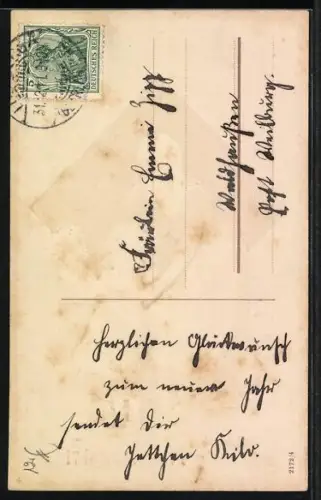 DEUTSCHES REICH
Fräulein Emma Zipp
Waldhausen
Post Weilburg.
Herzlichen Glückwunsch
zum neuen Jahr
sendet Dir
Jettchen
2173/4